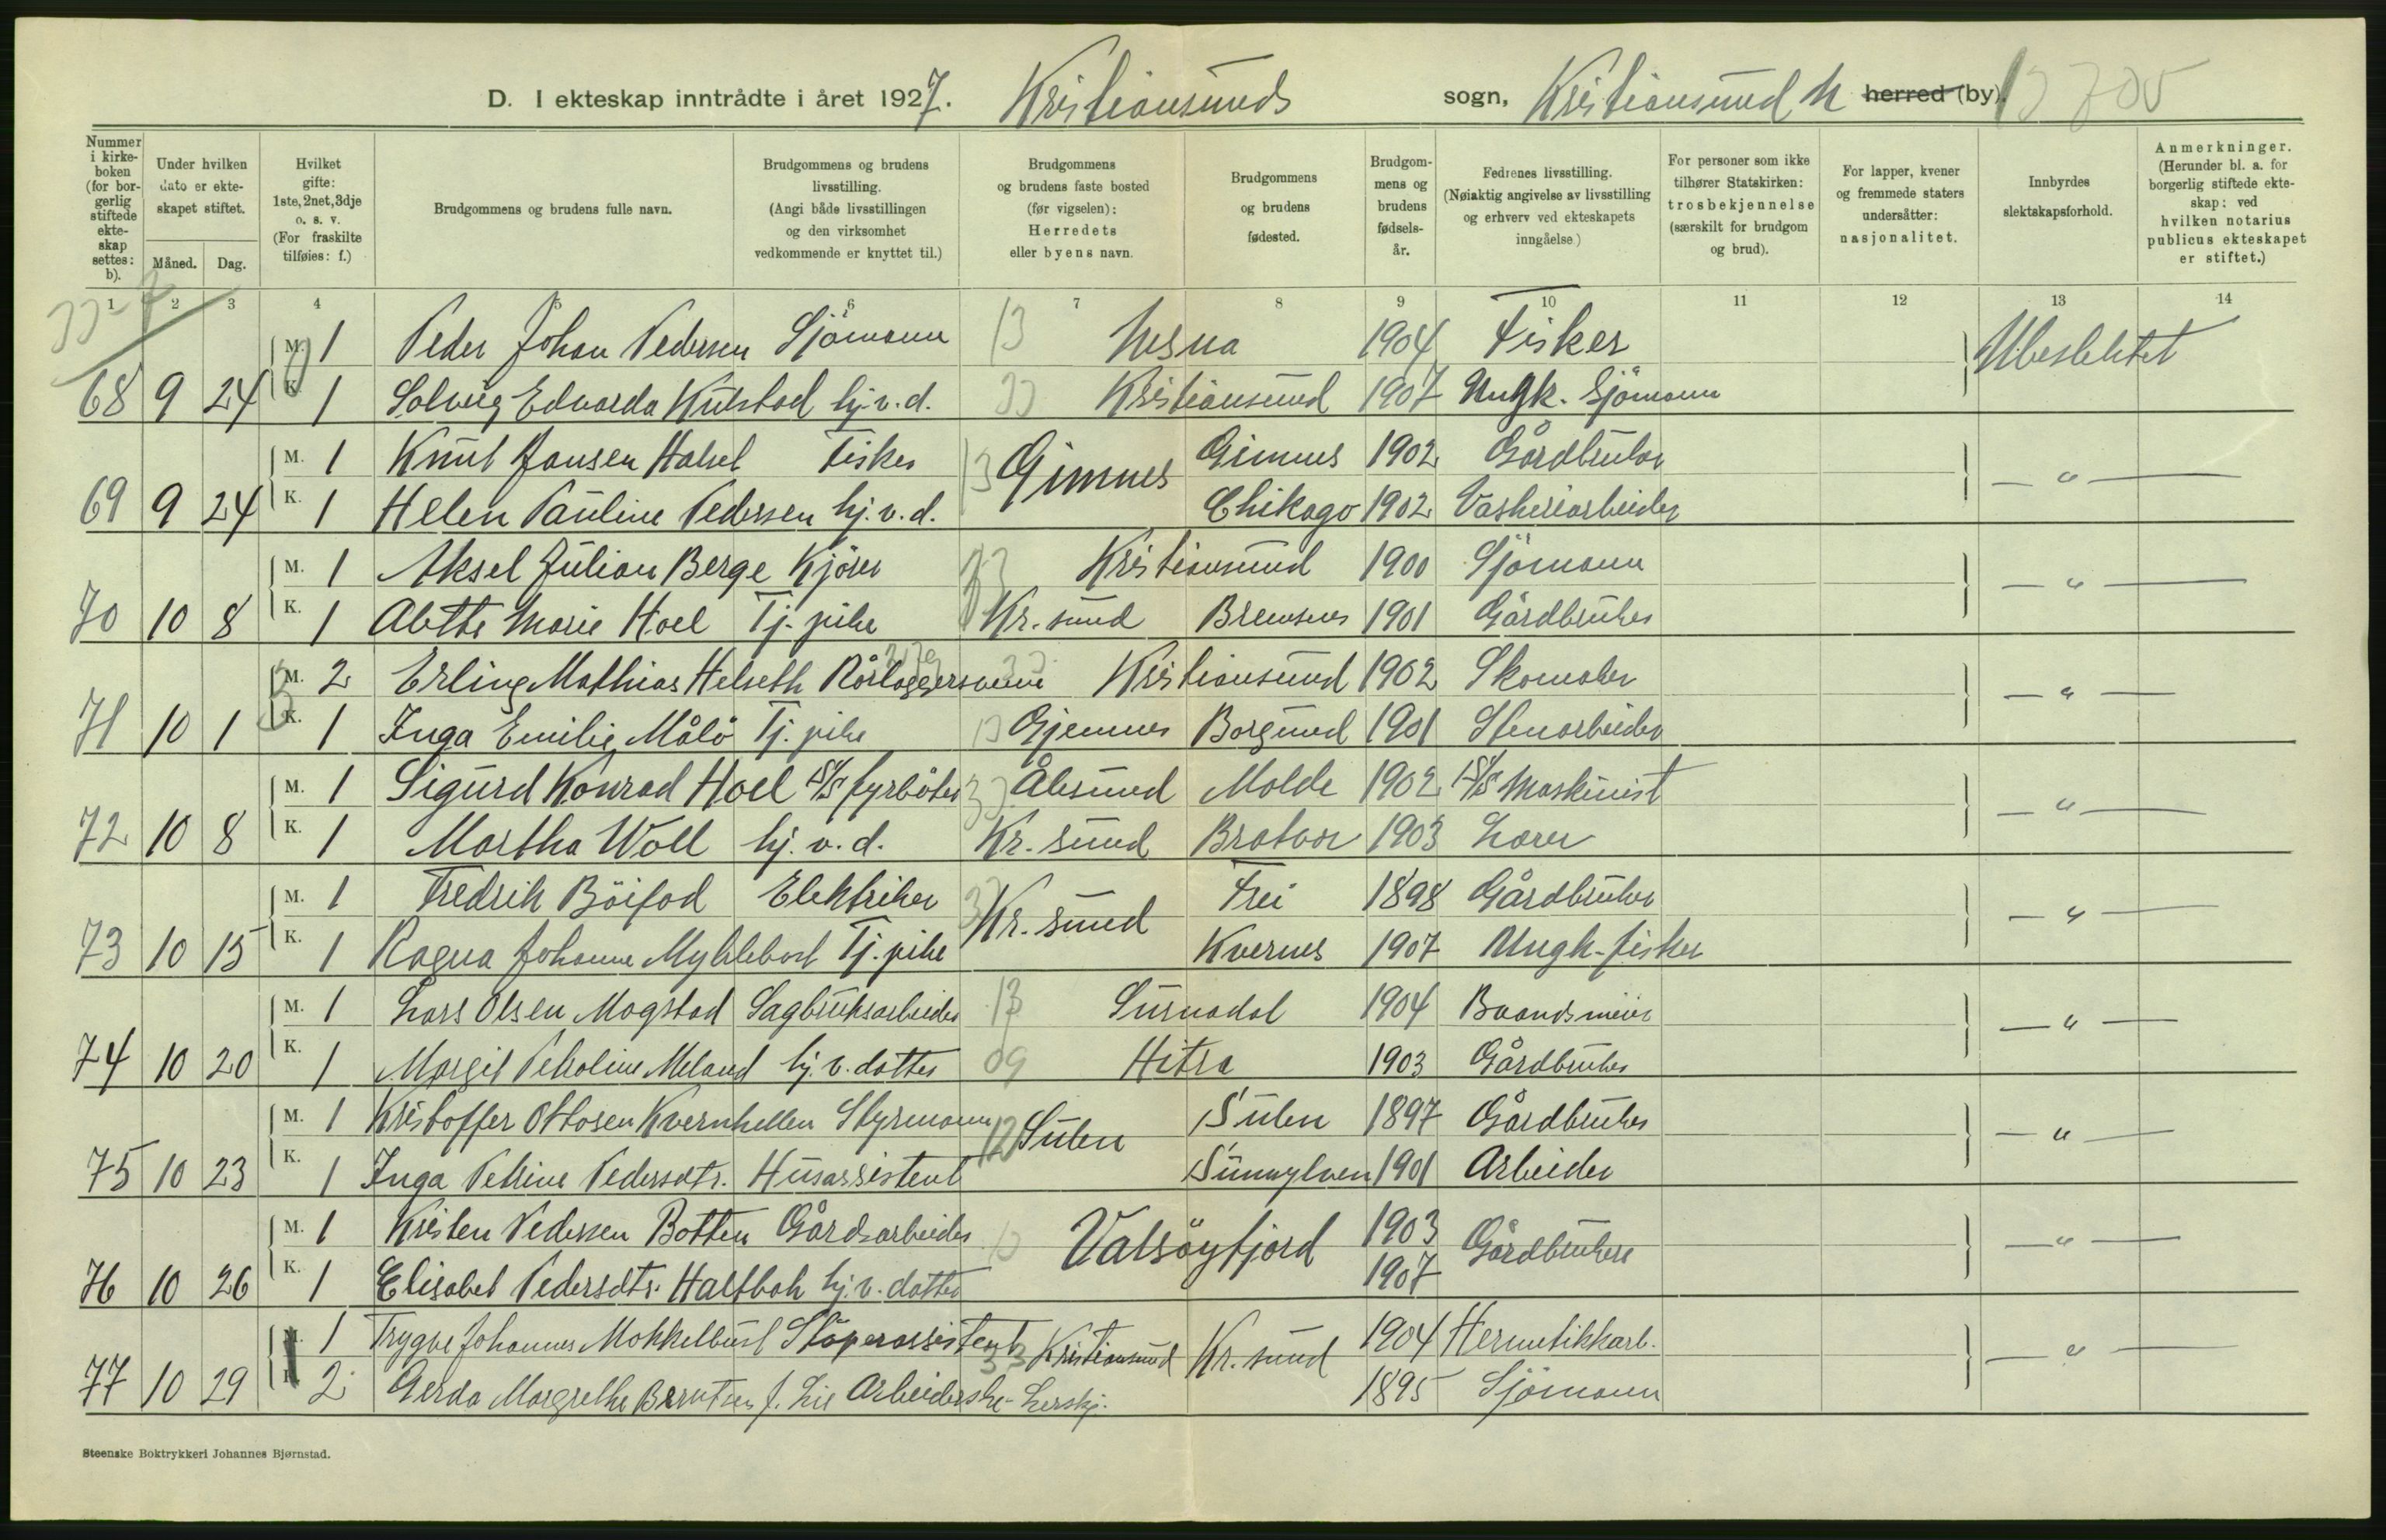 D. I ekteskap inntrådte i året 1927. Kristiansunds sogn, Kristiansund N herred (by).
Nummer i kirke-boken (for bor-gerlig stiftede ekte-skap settes: b).
Under hvilken dato er ekte-skapet stiftet.
Måned. Dag.
Hvilket gifte: 1ste, 2net, 3dje o. s. v. (For fraskilte tilføies: f.)
Brudgommens og brudens fulle navn.
Brudgommens og brudens livsstilling. (Angi både livsstillingen og den virksomhet vedkommende er knyttet til.)
Brudgommens og brudens faste bosted (før vigselen): Herredets eller byens navn.
Brudgommens og brudens fødested.
Brudgom-mens og brudens fødsels-år.
Fedrenes livsstilling. (Nøiaktig angivelse av livsstilling og erhverv ved ekteskapets inngåelse)
For personer som ikke tilhører Statskirken: trosbekjennelse (særskilt for brudgom og brud).
For lapper, kvener og fremmede staters undersåtter: nasjonalitet.
Innbyrdes slektskapsforhold.
Anmerkninger. (Herunder bl. a. for borgerlig stiftede ekte-skap: ved hvilken notarius publicus ekteskapet er stiftet.)
1 2 3 4 5 6 7 8 9 10 11 12 13 14
M. 1 Peder Johan Pedersen Sjömann 13 Nesna 1904 Fisker Ubeslektet
68 9 24 K. 1 Solveig Edvarda Kulstad hj. v. d. Kristiansund 1907 Ungk. Sjömann
M. 1 Knut Jansen Halset Fisker 13 Gimnes Gimnes 1902 Gårdbruker — " —
69 9 24 K. 1 Helen Pauline Pedersen hj. v. d. Chikago 1902 Vaskeriarbeider
M. 1 Aksel Julian Berge Kjörer Kristiansund 1900 Sjömann — " —
70 10 8 K. 1 Alette Marie Hoel Tj. pike Kr. sund Bremsnes 1901 Gårdbruker
M. 2 Erling Mathias Helseth Rörleggersvenn Kristiansund 1902 Skomaker — " —
71 10 1 K. 1 Inga Emilie Målö Tj. pike Gjemnes Borgund 1901 Stenarbeider
M. 1 Sigurd Konrad Hoel D/S fyrböter Ålesund Molde 1902 D/S Maskinist — " —
72 10 8 K. 1 Martha Woll hj. v. d. Kr. sund Bratvær 1903 Lærer
M. 1 Fredrik Böifod Elektriker Kr. sund Frei 1898 Gårdbruker — " —
73 10 15 K. 1 Ragna Johanne Myklebost Tj. pike Kvernes 1907 Ungk-fisker
M. 1 Lars Olsen Mogstad Sagbruksarbeider 13 Surnadal 1904 Baandsmeier — " —
74 10 20 K. 1 Margit Petroline Meland hj. v. datter 09 Hitra 1903 Gårdbruker
M. 1 Kristoffer Ottosen Kvernhellen Styrmann 12 Sulen Sulen 1897 Gårdbruker — " —
75 10 23 K. 1 Inga Petrine Pedersdtr. Husassistent Sunnylven 1901 Arbeider
M. 1 Kristen Pedersen Botten Gårdsarbeider Valsöyfjord 1903 Gårdbrukere — " —
76 10 26 K. 1 Elisabet Pedersdtr. Haltbak hj. v. datter 1907
M. 1 Trygve Johannes Mokkelbust Stöperassistent 33 Kristiansund Kr. sund 1904 Hermetikkarb. — " —
77 10 29 K. 2 Gerda Margrethe Berntsen f. Lie Arbeiderske-Lerskj. 1895 Sjömann
Steenske Boktrykkeri Johannes Bjørnstad.